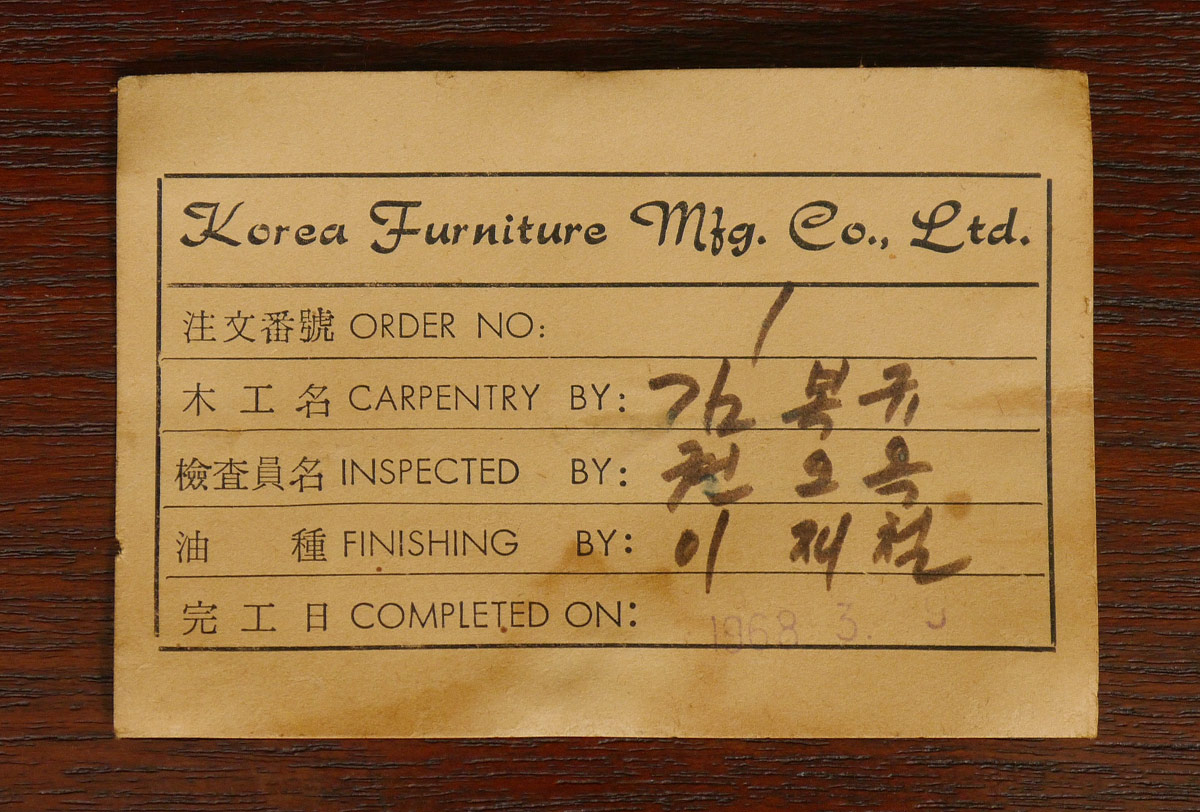 Korea Furniture Mfg. Co., Ltd.
注文番號 ORDER NO: 1
木工名 CARPENTRY BY: 김복규
檢査員名 INSPECTED BY: 권오옥
油種 FINISHING BY: 이재철
完工日 COMPLETED ON: 1968 3.